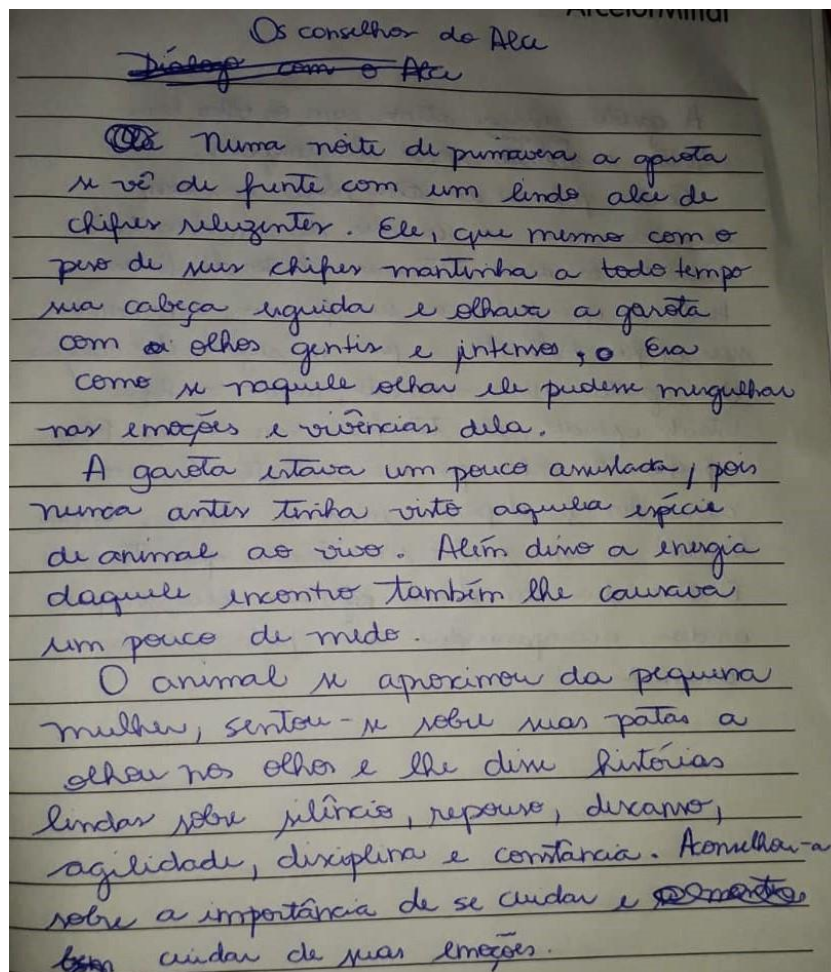 ArcelorMittal
Os conselhos do Alce
Diálogo com o Alce
Numa noite de primavera a garota
se vê de frente com um lindo alce de
chifres reluzentes. Ele, que mesmo com o
peso de seus chifres mantinha a todo tempo
sua cabeça erguida e olhava a garota
com olhos gentis e intensos, o Era
como se naquele olhar ele pudesse mergulhar
nas emoções e vivências dela.
A garota estava um pouco assustada, pois
nunca antes tinha visto aquela espécie
de animal ao vivo. Além disso a energia
daquele encontro também lhe causava
um pouco de medo.
O animal se aproximou da pequena
mulher, sentou-se sobre suas patas a
olhou nos olhos e lhe disse histórias
lindas sobre silêncio, repouso, descanso,
agilidade, disciplina e constância. Aconselhou-a
sobre a importância de se cuidar e
cuidar de suas emoções.